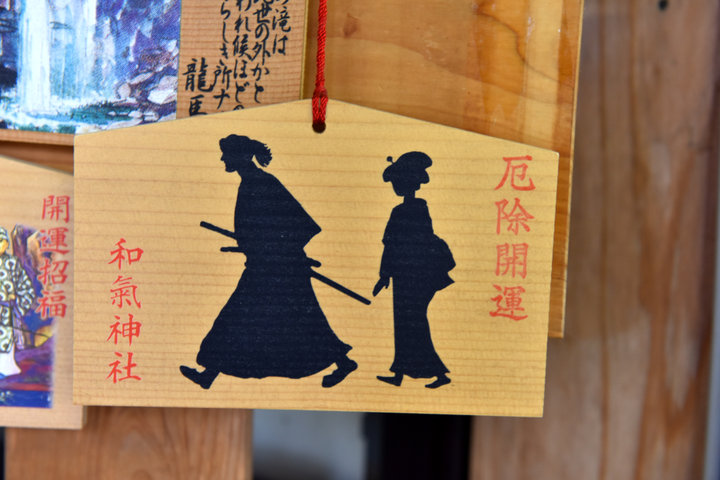 の滝は
世の外かと
われ候ほどの
らしき所ナ
龍馬
厄除開運
和氣神社
開運招福